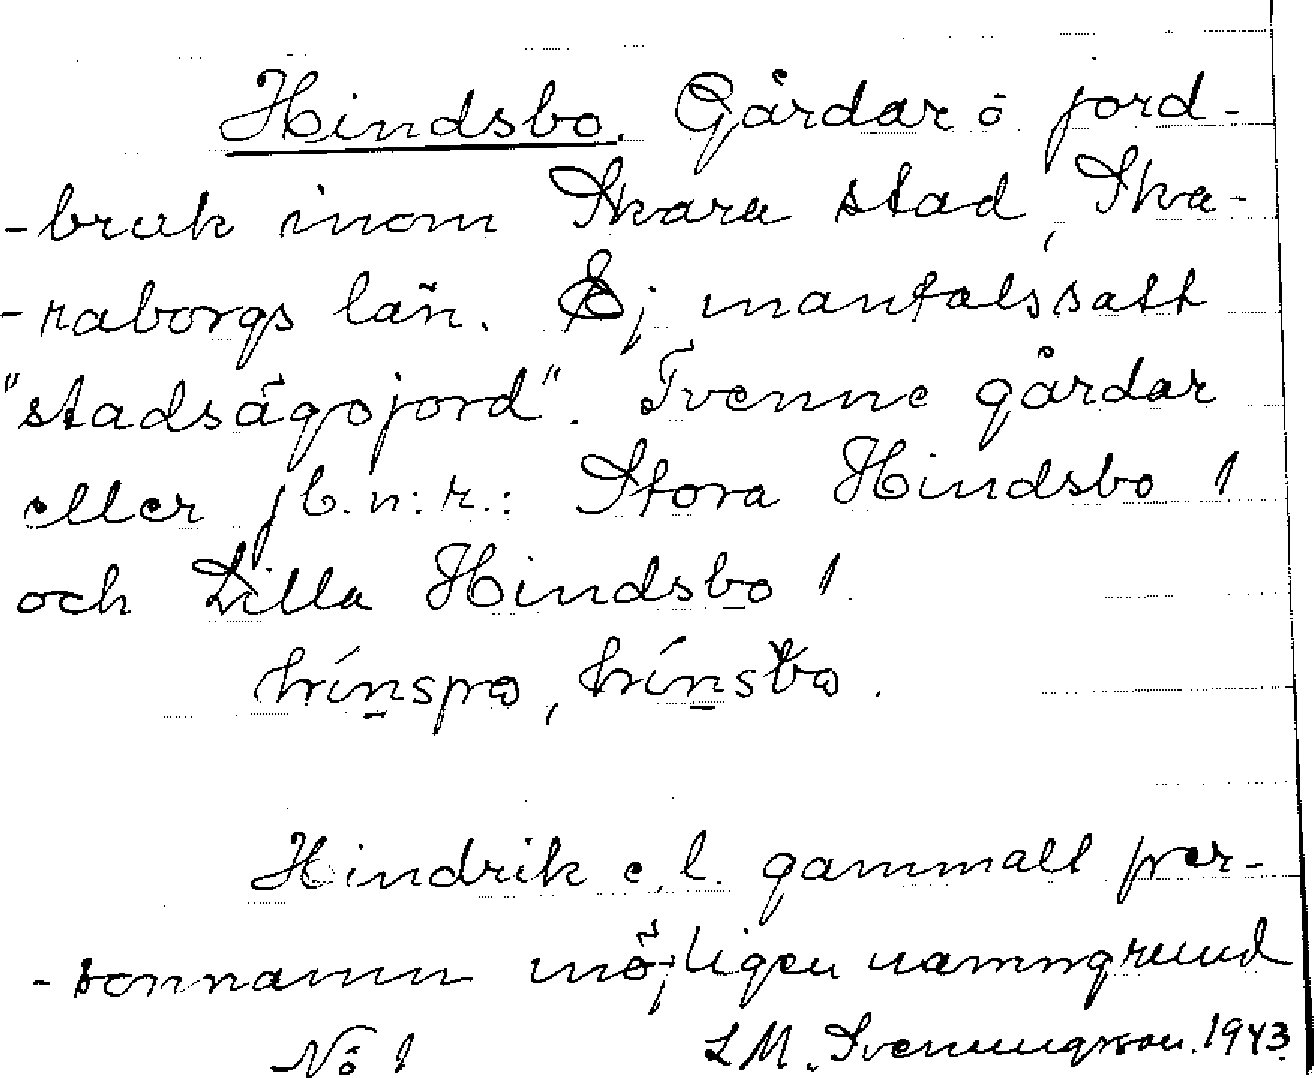 Hindsbo. Gårdar o jord-
-bruk inom Skara stad, Ska-
-raborgs län. Ej mantalssatt
"stadsägojord". Tvenne gårdar
eller jb.n:r.: Stora Hindsbo 1
och Lilla Hindsbo 1.
hínspo, hínsbo.
Hindrik e.l. gammalt per-
-sonnamn möjligen namngrund
No 1 L M. Svenungsson. 1943